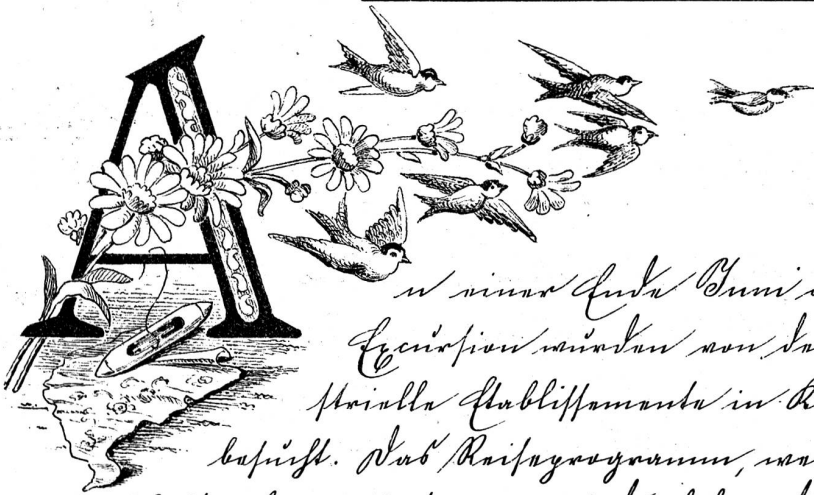 An einer Ende Juni
Excursion wurden von
strielle Etablissemente in
besucht. Das Reiseprogramm,